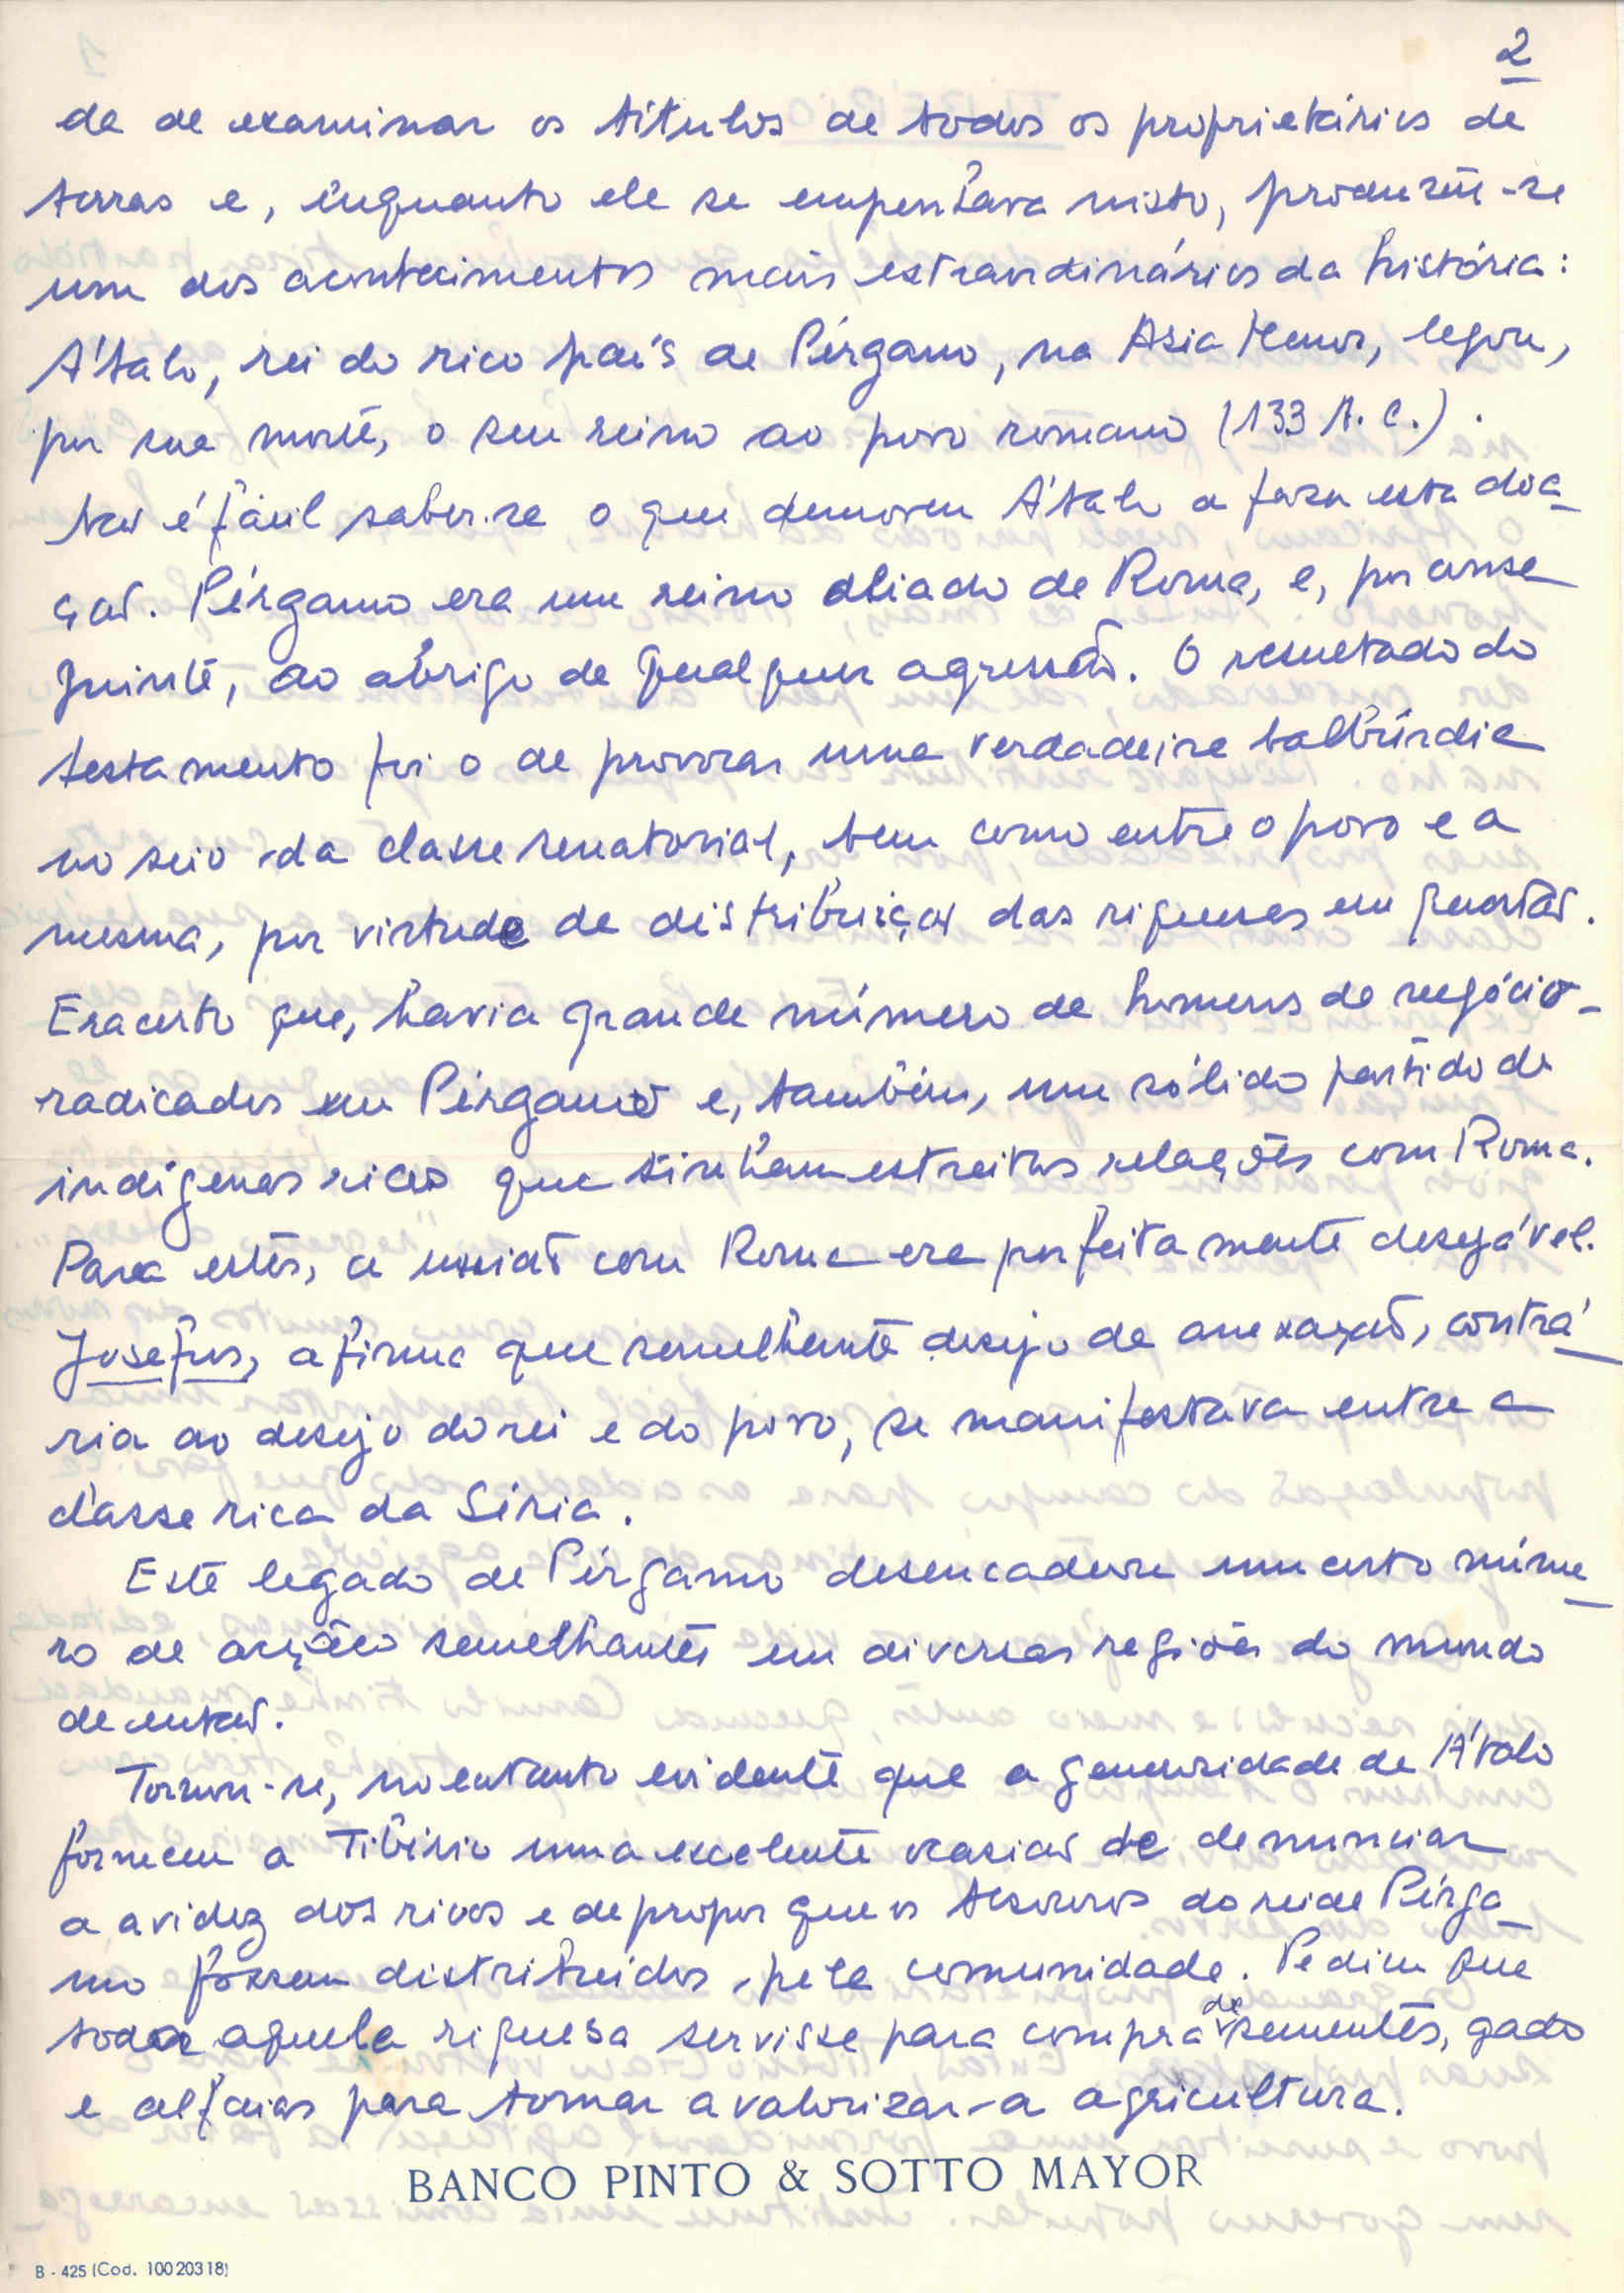 2
da de examinar os títulos de todos os proprietários de
terras e, enquanto ele se empenhava nisto, produziu-se
um dos acontecimentos mais extraordinários da história:
Átalo, rei do rico país de Pérgamo, na Asia Menor, legou,
por sua morte, o seu reino ao povo romano (133 A.C.).
Não é fácil saber-se o que demoveu Átalo a fazer esta doa-
ção. Pérgamo era um reino aliado de Roma, e, por conse
quinte, ao abrigo de qualquer agressão. O resultado do
testamento foi o de provocar uma verdadeira balbúrdia
no seio da classe senatorial, bem como entre o povo e a
mesma, por virtude de distribuição das riquesas em questão.
Era certo que, havia grande número de homens de negócio
radicados em Pérgamo e, também, um sólido partido de
indígenas ricos que tinham estreitas relações com Roma.
Para estes, a união com Roma era perfeitamente desejável.
Josefus, afirma que semelhante desejo de anexação, contrá-
ria ao desejo do rei e do povo, se manifestava entre a
classe rica da Síria.
Este legado de Pérgamo desencadeou um certo núme-
ro de acções semelhantes em diversas regiões do mundo
de então.
Tornou-se, no entanto evidente que a generosidade de Átalo
forneceu a Tibério uma excelente ocasião de denunciar
a avidez dos ricos e de propor que os tesouros do rei de Pérga-
mo fossem distribuidos pela comunidade. Pediu que
toda aquela riquesa servisse para compra de sementes, gado
e alfaias para tornar a valorizar-a agricultura.
BANCO PINTO & SOTTO MAYOR
B - 425 (Cod. 10020318)